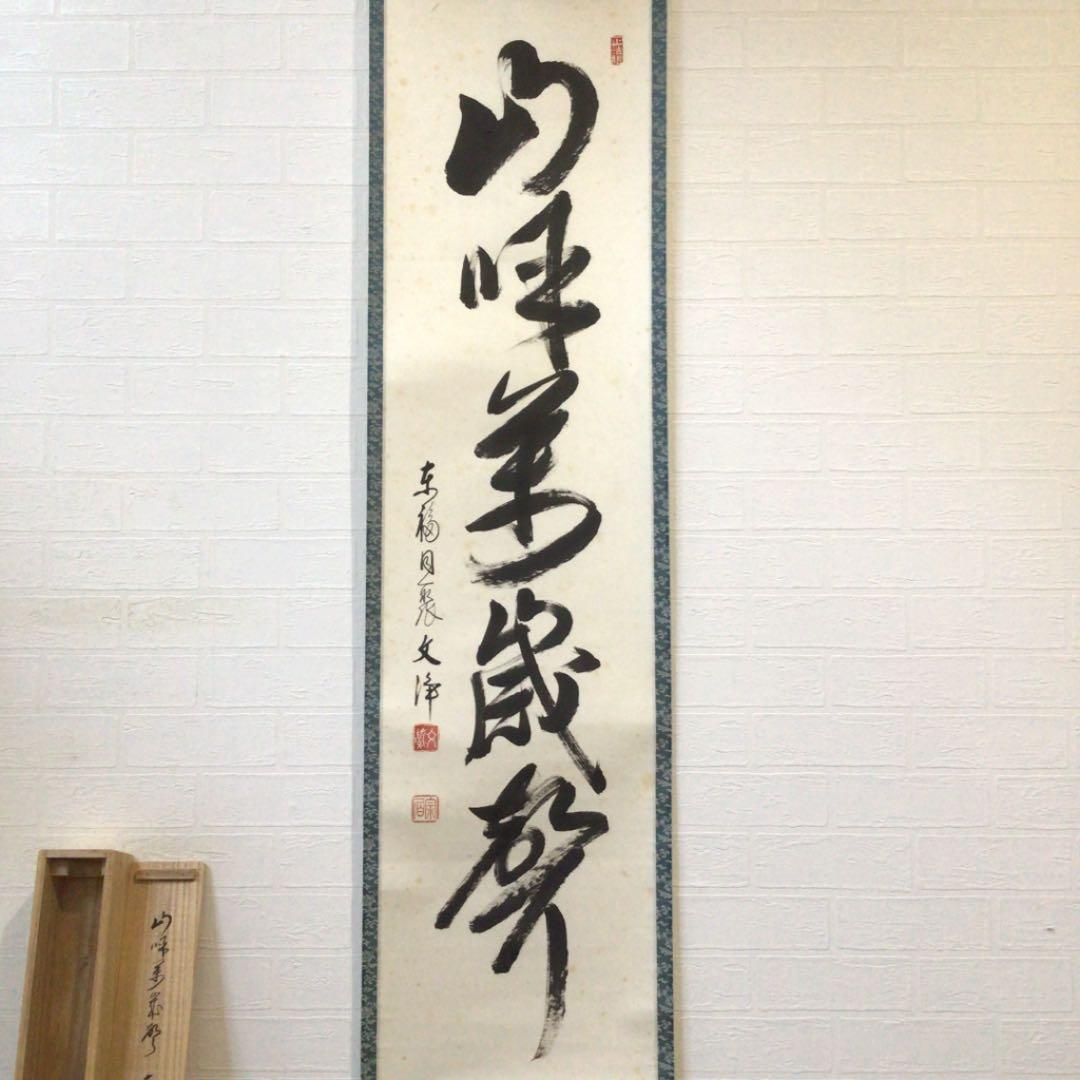 山呼萬歳聲
東福同聚文渓
山呼萬歳聲